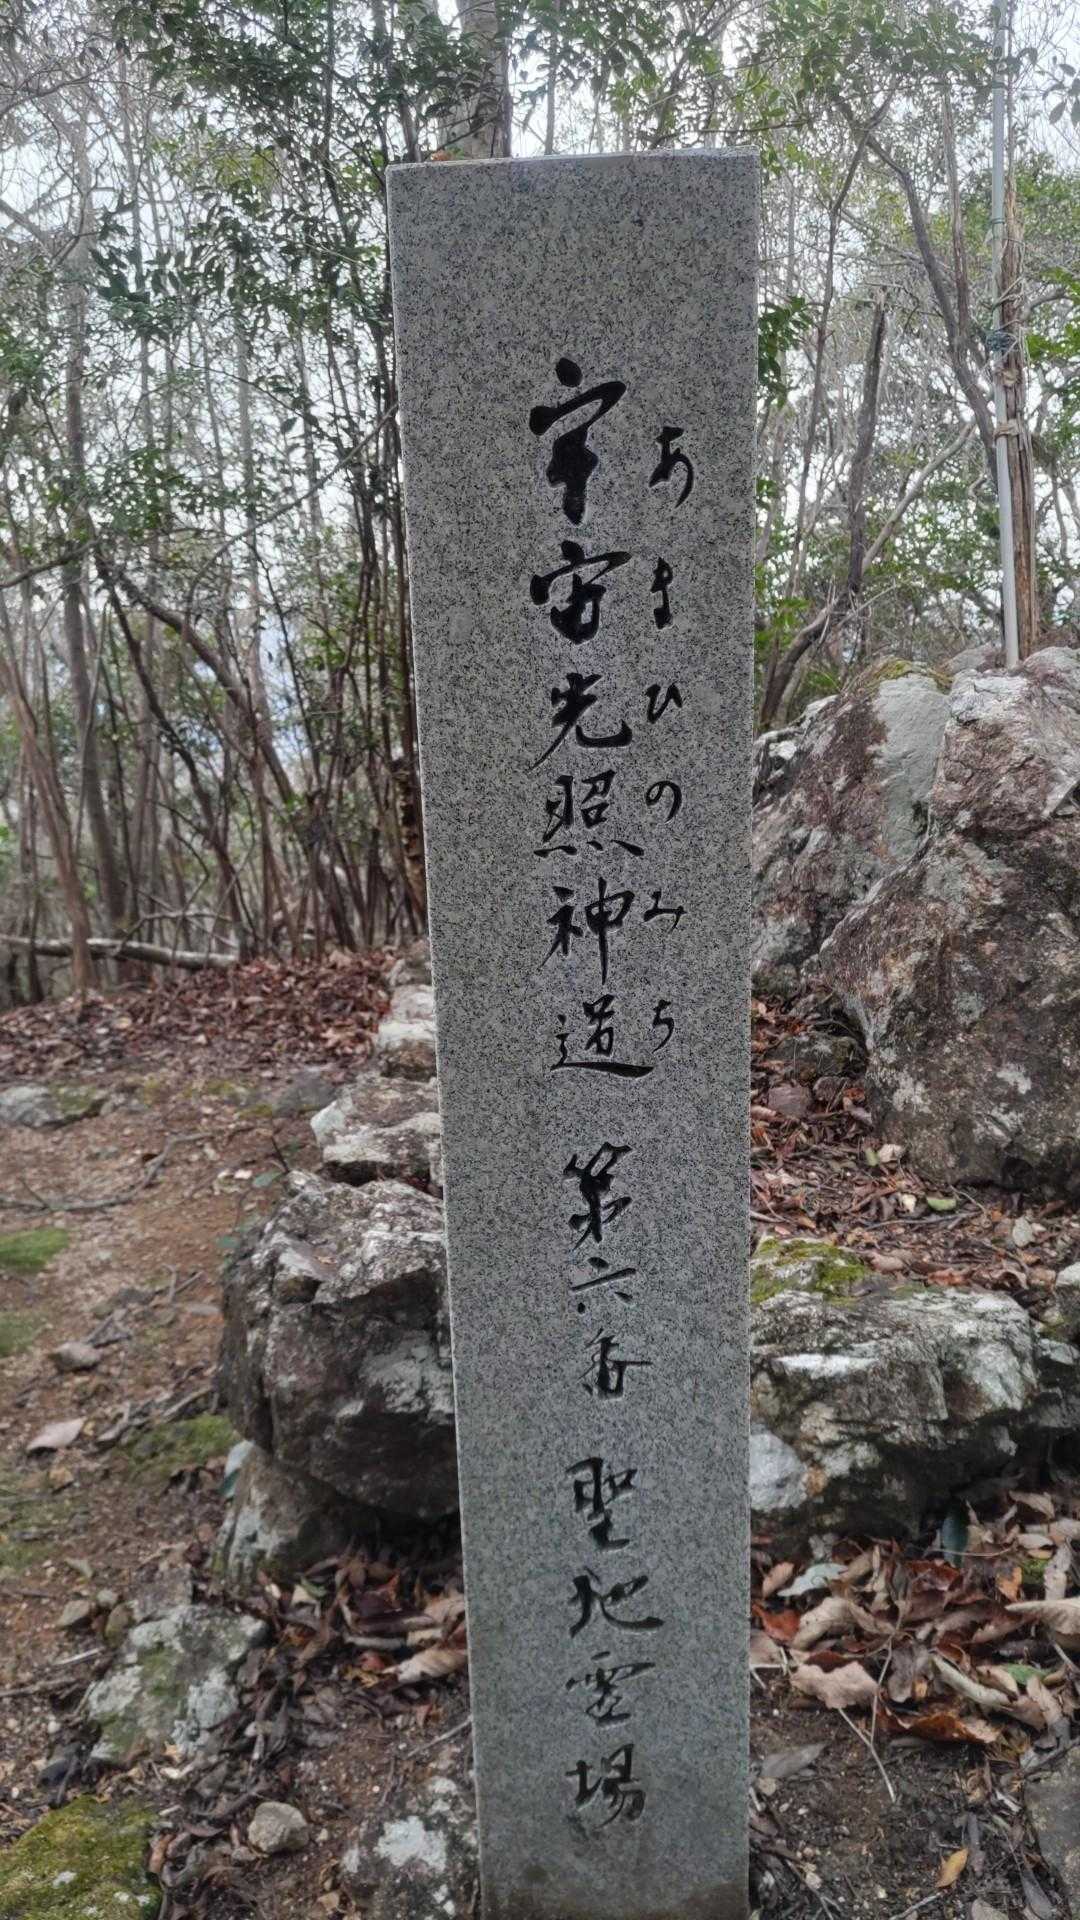 宇宙光照神道 第六番 聖地霊場
あまひのみち